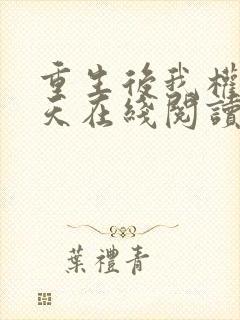 重生後我權
天在綫閱讀
葉禮青